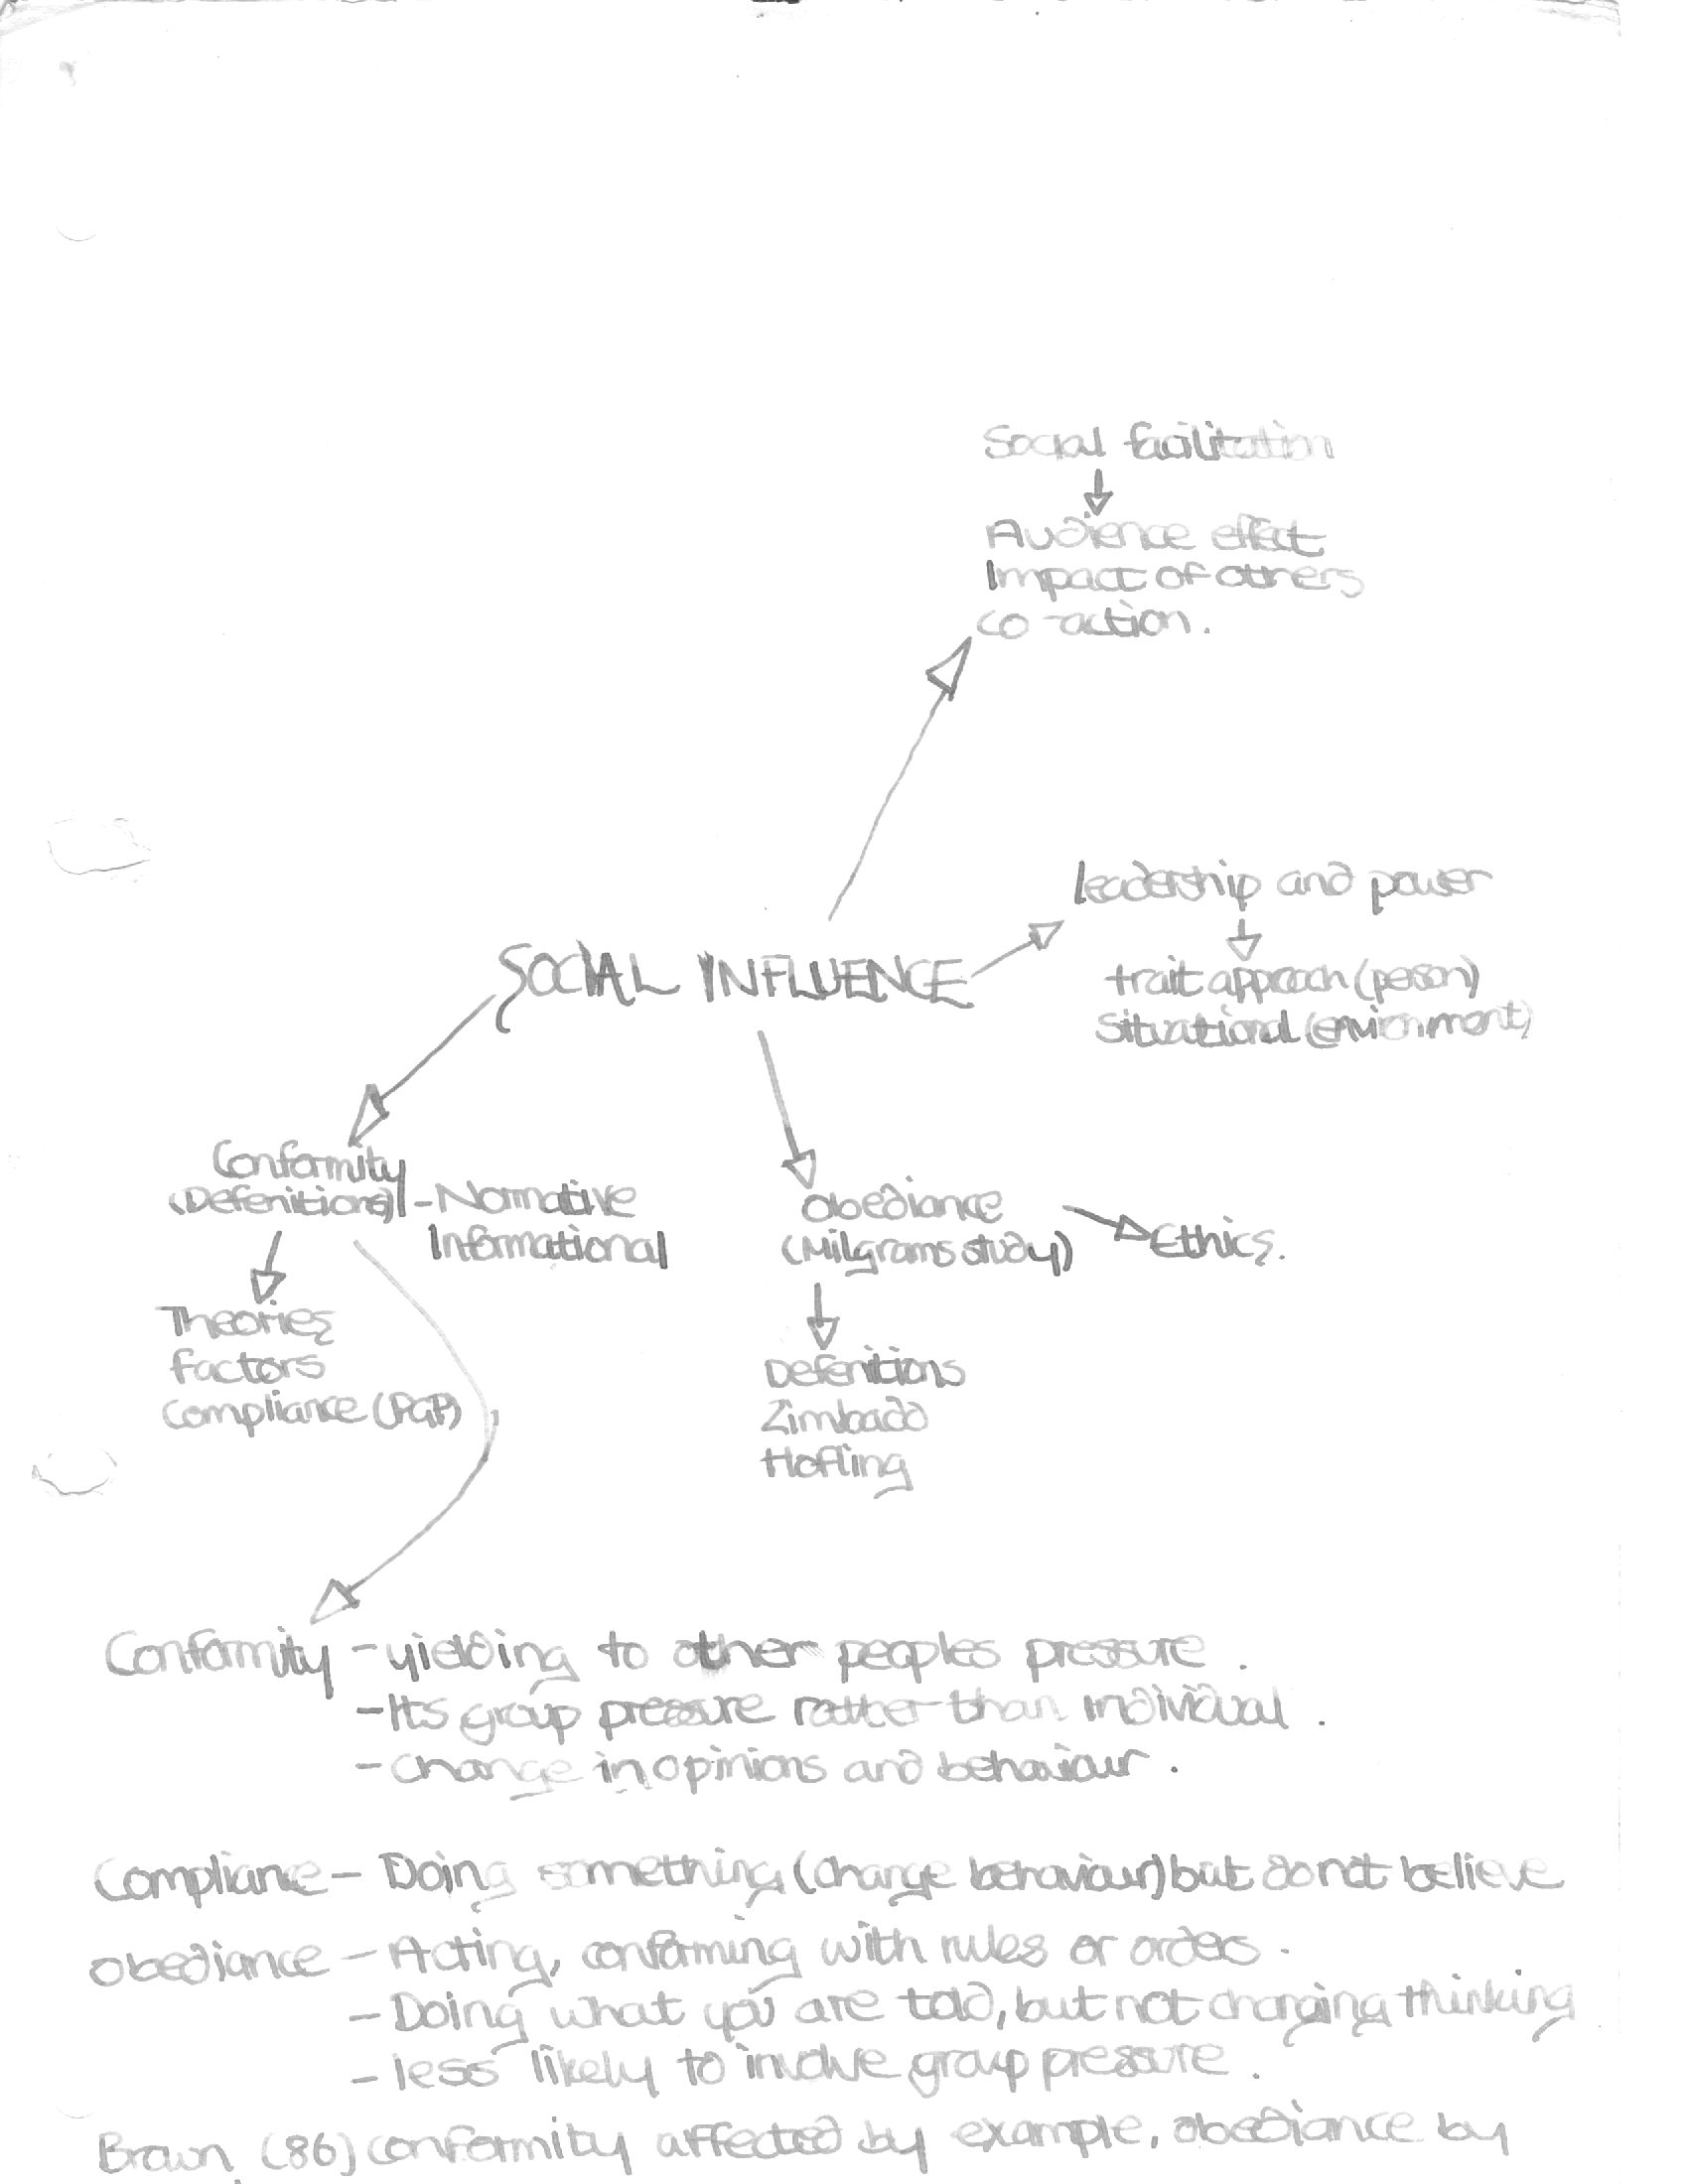 Social facilitation
Audience effect
Impact of others
co-action.
leadership and power
trait approach (person)
Situational (environment)
SOCIAL INFLUENCE
Conformity
(Defenitions) - Normative
Informational
Obediance
(Milgrams study)
Ethics.
Theories
factors
compliance (PGP)
Defenitions
Zimbado
Hofling
Conformity - yielding to other peoples pressure.
- Its group pressure rather than individual.
- change in opinions and behaviour.
Compliance - Doing something (change behaviour) but donot believe
Obediance - Acting, conforming with rules or orders.
- Doing what you are told, but not changing thinking
- less likely to involve group pressure.
Brown (86) conformity affected by example, obediance by